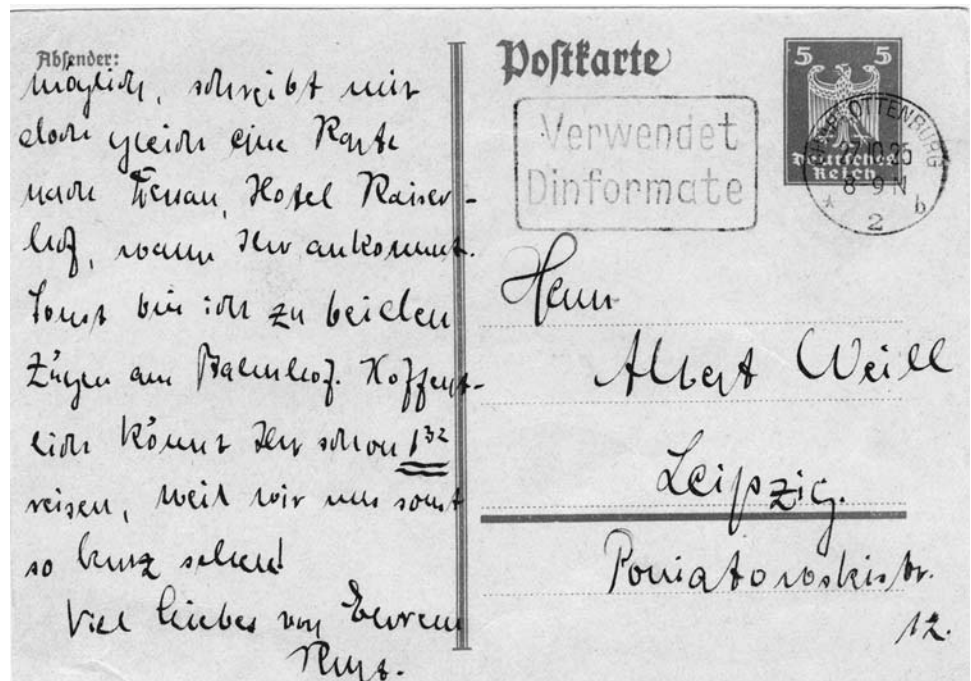 Absender:
möglich, schreibt mir
doch gleich eine Karte
nach Dessau, Hotel Kaiser-
hof, wann Ihr ankommt.
Sonst bin ich zu beiden
Zügen am Bahnhof. Hoffent-
lich könnt Ihr schon 1³²
reisen, weil wir uns sonst
so kurz sehen!
Viel Liebes von Eurem
Kurt.
Postkarte
Verwendet
Dinformate
5 5
Deutsches
Reich
CHARLOTTENBURG
8-9 N
* 2 b
Herrn
Albert Weill
Leipzig.
Poniatowskistr.
12.